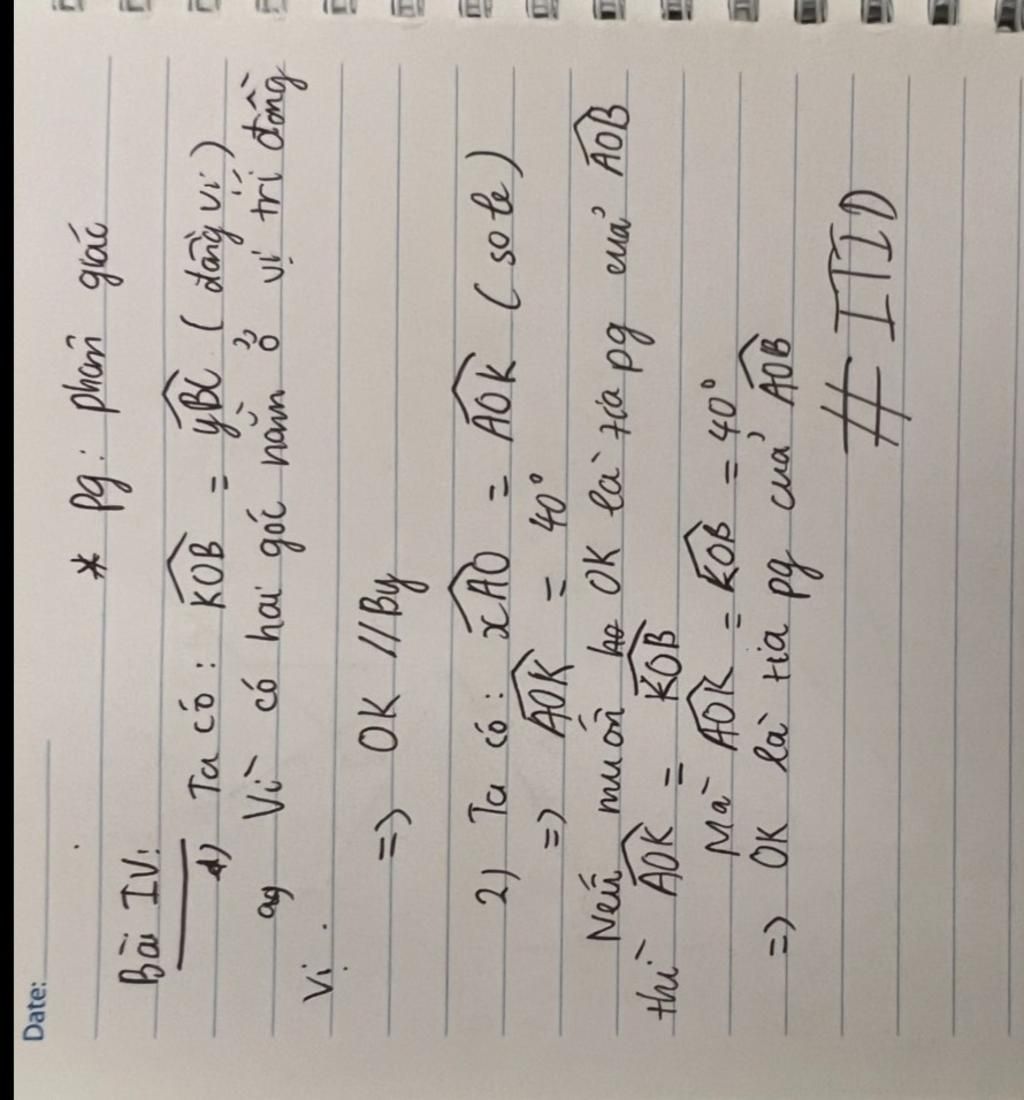 Date:
* pg: phân giác
Bài IV:
1) Ta có: KOB = yBL (đồng vị)
Vì có hai góc nằm ở vị trí đồng
vị.
=) OK // By
2) Ta có: xAO = AOK (so le)
=) AOK = 40°
Nếu muốn OK là tia pg của AOB
thì AOK = KOB
Mà AOK = KOB = 40°
=) OK là tia pg của AOB
# ITID